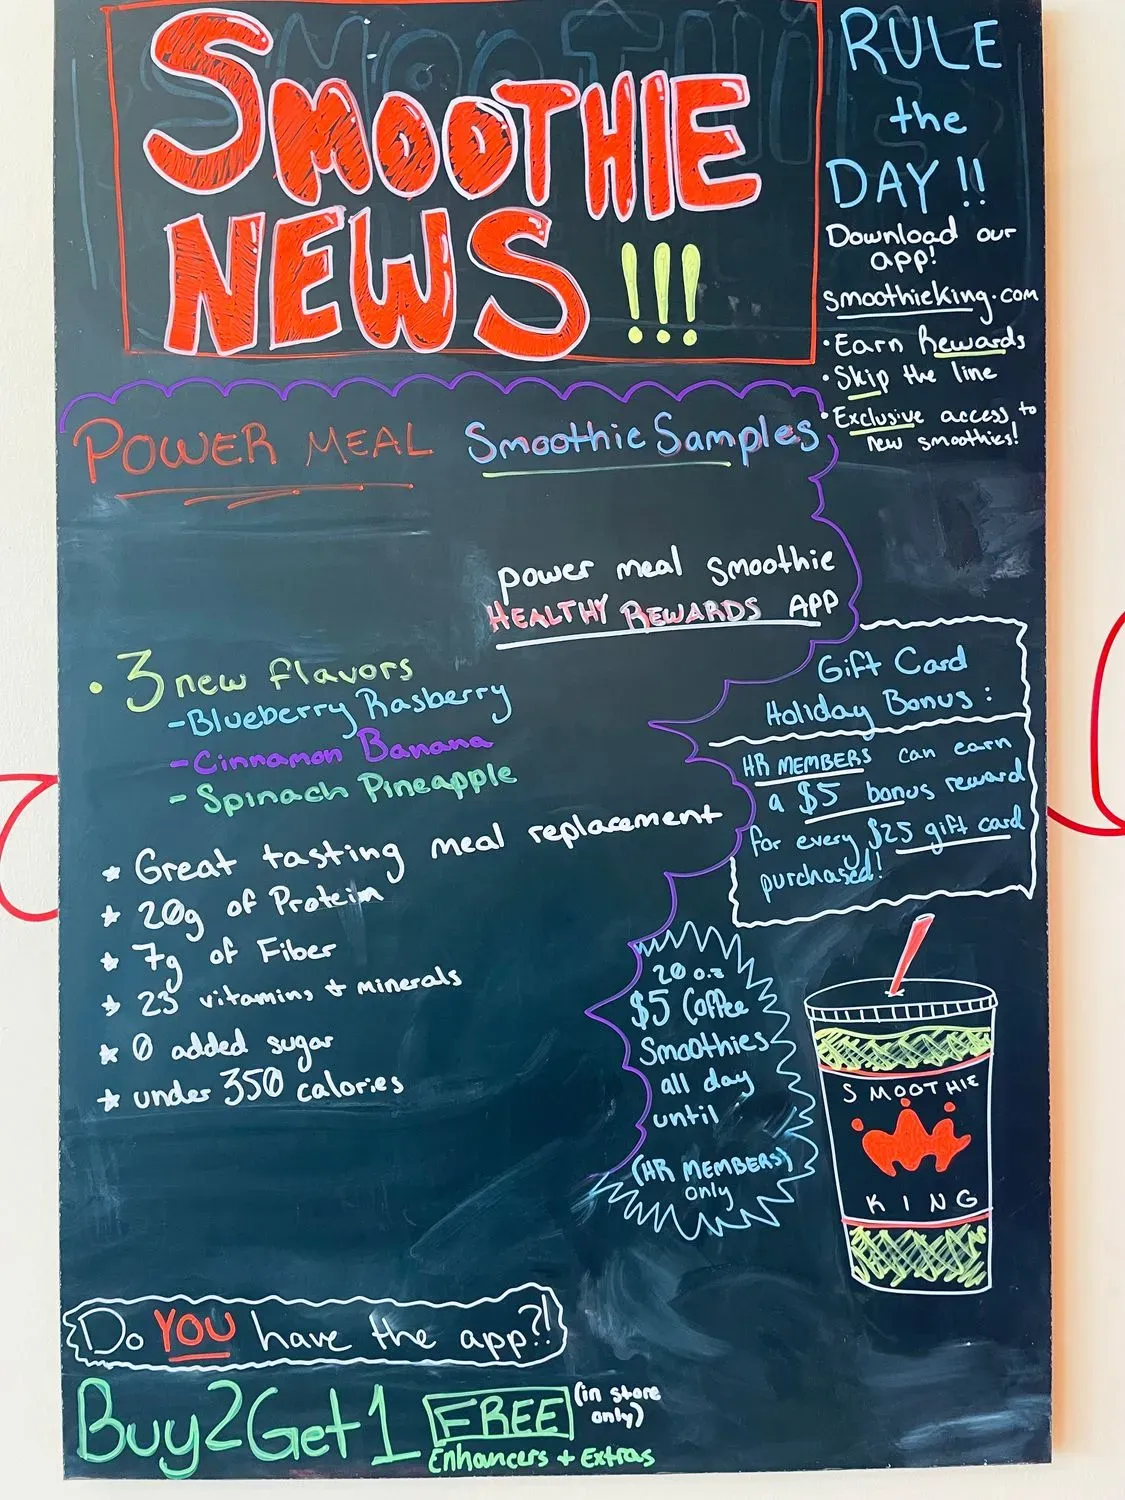 SMOOTHIE
NEWS!!!
RULE
the
DAY!!
Download our
app!
smoothieking.com
· Earn Rewards
· Skip the line
· Exclusive access to
new smoothies!
POWER MEAL Smoothie Samples
power meal smoothie
HEALTHY REWARDS APP
· 3 new flavors
- Blueberry Rasberry
- Cinnamon Banana
- Spinach Pineapple
* Great tasting meal replacement
* 20g of Protein
* 7g of Fiber
* 23 vitamins + minerals
* 0 added sugar
* under 350 calories
Gift Card
Holiday Bonus:
HR MEMBERS can earn
a $5 bonus reward
for every $25 gift card
purchased!
20 oz
$5 Coffee
Smoothies
all day
until
(HR MEMBERS)
only
SMOOTHIE
KING
Do YOU have the app?!
Buy 2 Get 1 FREE (in store
only)
Enhancers + Extras